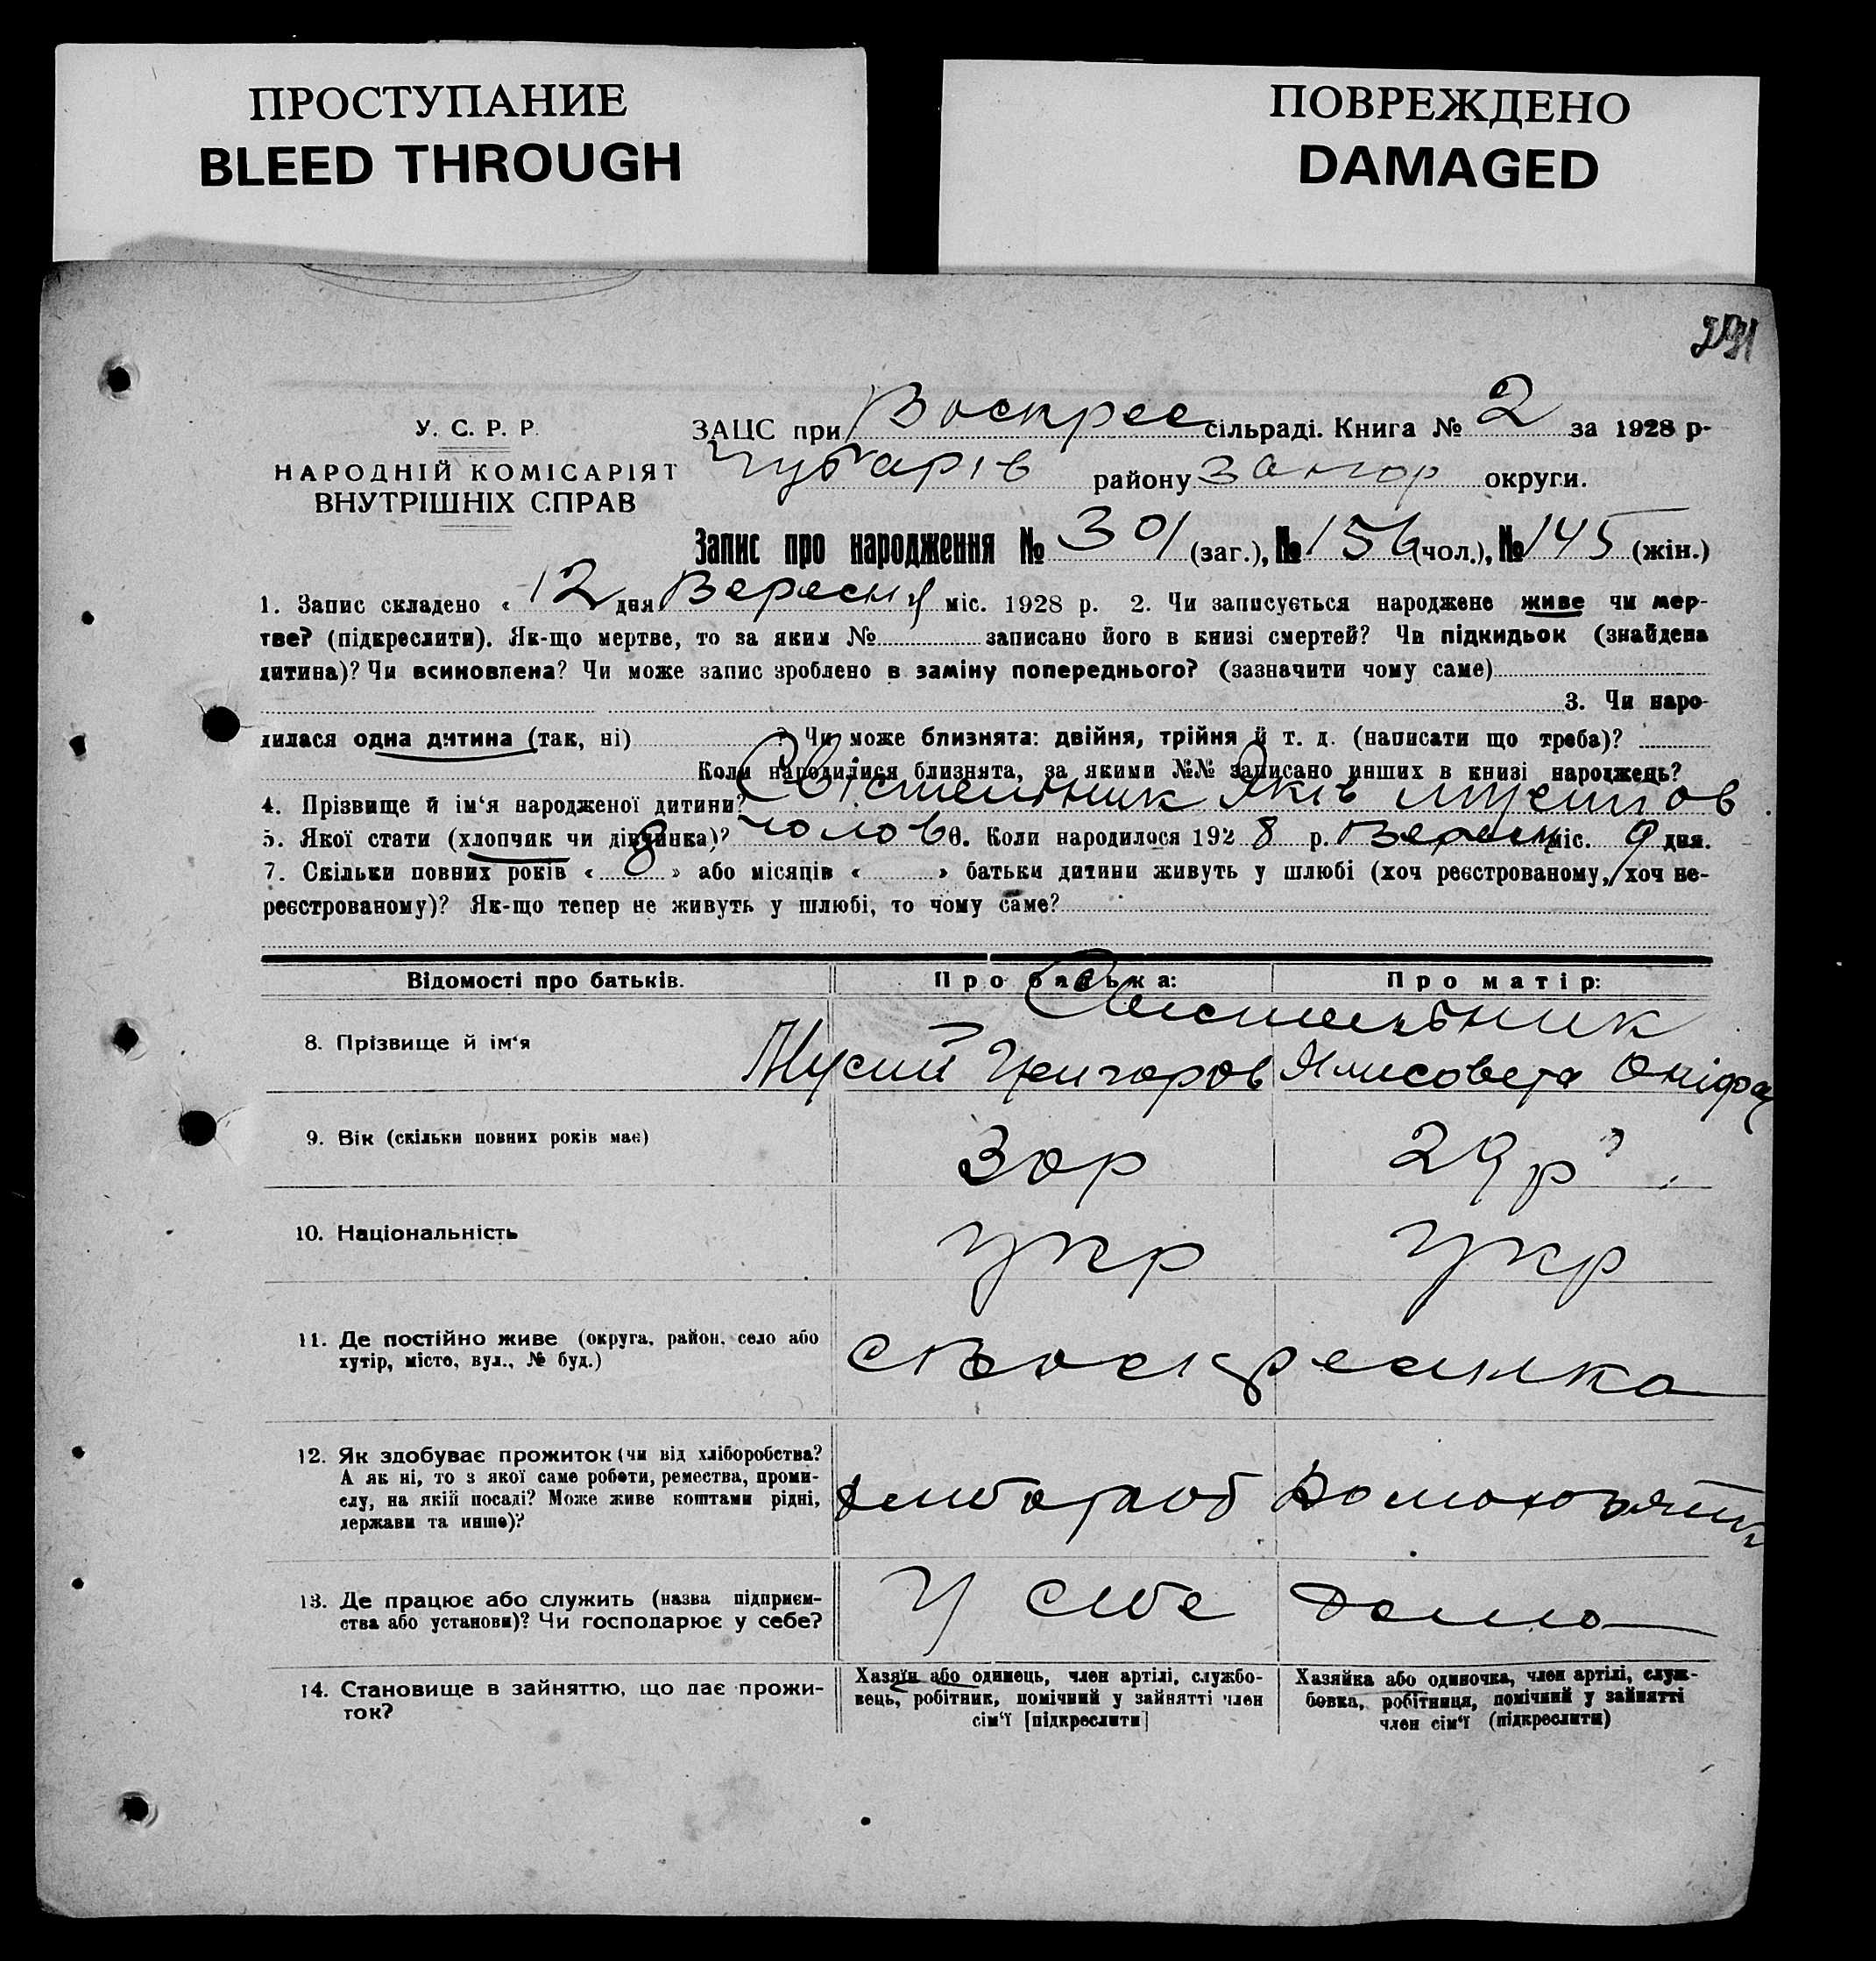 ПРОСТУПАНИЕ
BLEED THROUGH
ПОВРЕЖДЕНО
DAMAGED
У. С. Р. Р.
НАРОДНІЙ КОМІСАРІЯТ
ВНУТРІШНІХ СПРАВ
ЗАЦС при Воскрес сільраді. Книга № 2 за 1928 р-
Чубарів району Запор округи.
Запис про народження № 301 (заг.), № 156 (чол.), № 145 (жін.)
1. Запис складено « 12 дня Вересня міс. 1928 р. 2. Чи записується народжене живе чи мер-
тве? (підкреслити). Як-що мертве, то за яким № записано його в книзі смертей? Чи підкидьок (знайдена
дитина)? Чи всиновлена? Чи може запис зроблено в заміну попереднього? (зазначити чому саме)
3. Чи наро-
дилася одна дитина (так, ні) ? Чи може близнята: двійня, трійня й т. д. (написати що треба)?
Коли народилися близнята, за якими №№ записано инших в книзі народжень?
4. Прізвище й ім‘я народженої дитини? Яків
5. Якої стати (хлопчик чи дівчинка)? чолов 6. Коли народилося 1928 р. Вересн міс. 9 дня.
7. Скільки повних років « 8 » або місяців « » батьки дитини живуть у шлюбі (хоч реєстрованому, хоч не-
реєстрованому)? Як-що тепер не живуть у шлюбі, то чому саме?
Відомості про батьків. Про батька: Про матір:
8. Прізвище й ім‘я
Мусий Григоров Ялисовета Оніфр
9. Вік (скільки повних років має) 30р 29р
10. Національність укр укр
11. Де постійно живе (округа, район, село або
хутір, місто, вул., № буд.) с Воскресинка
12. Як здобуває прожиток (чи від хліборобства?
А як ні, то з якої саме роботи, ремества, проми-
слу, на якій посаді? Може живе коштами рідні,
держави та инше)?
хлибороб
13. Де працює або служить (назва підприєм-
ства або установи)? Чи господарює у себе?
У себе дома
14. Становище в зайняттю, що дає прожи-
ток?
Хазяїн або одинець, член артілі, службо-
вець, робітник, помічний у зайнятті член
сім‘ї [підкреслити]
Хазяйка або одиночка, член артілі, служ-
бовка, робітниця, помічний у зайнятті
член сім‘ї (підкреслити)